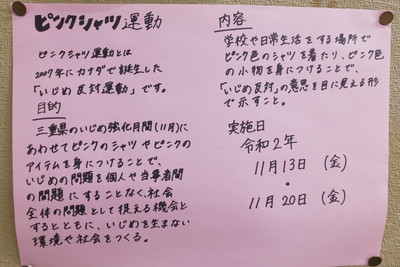 ピンクシャツ運動
ピンクシャツ運動とは
2007年にカナダで誕生した
「いじめ反対運動」です。
目的
三重県のいじめ強化月間(11月)に
あわせてピンクのシャツやピンクの
アイテムを身につけることで、
いじめの問題を個人や当事者間
の問題にすることなく、社会
全体の問題として捉える機会と
するとともに、いじめを生まない
環境や社会をつくる。
内容
学校や日常生活をする場所で
ピンク色のシャツを着たり、ピンク色
の小物を身につけることで、
「いじめ反対」の意思を目に見える形
で示すこと。
実施日
令和2年
11月13日(金)
・
11月20日(金)